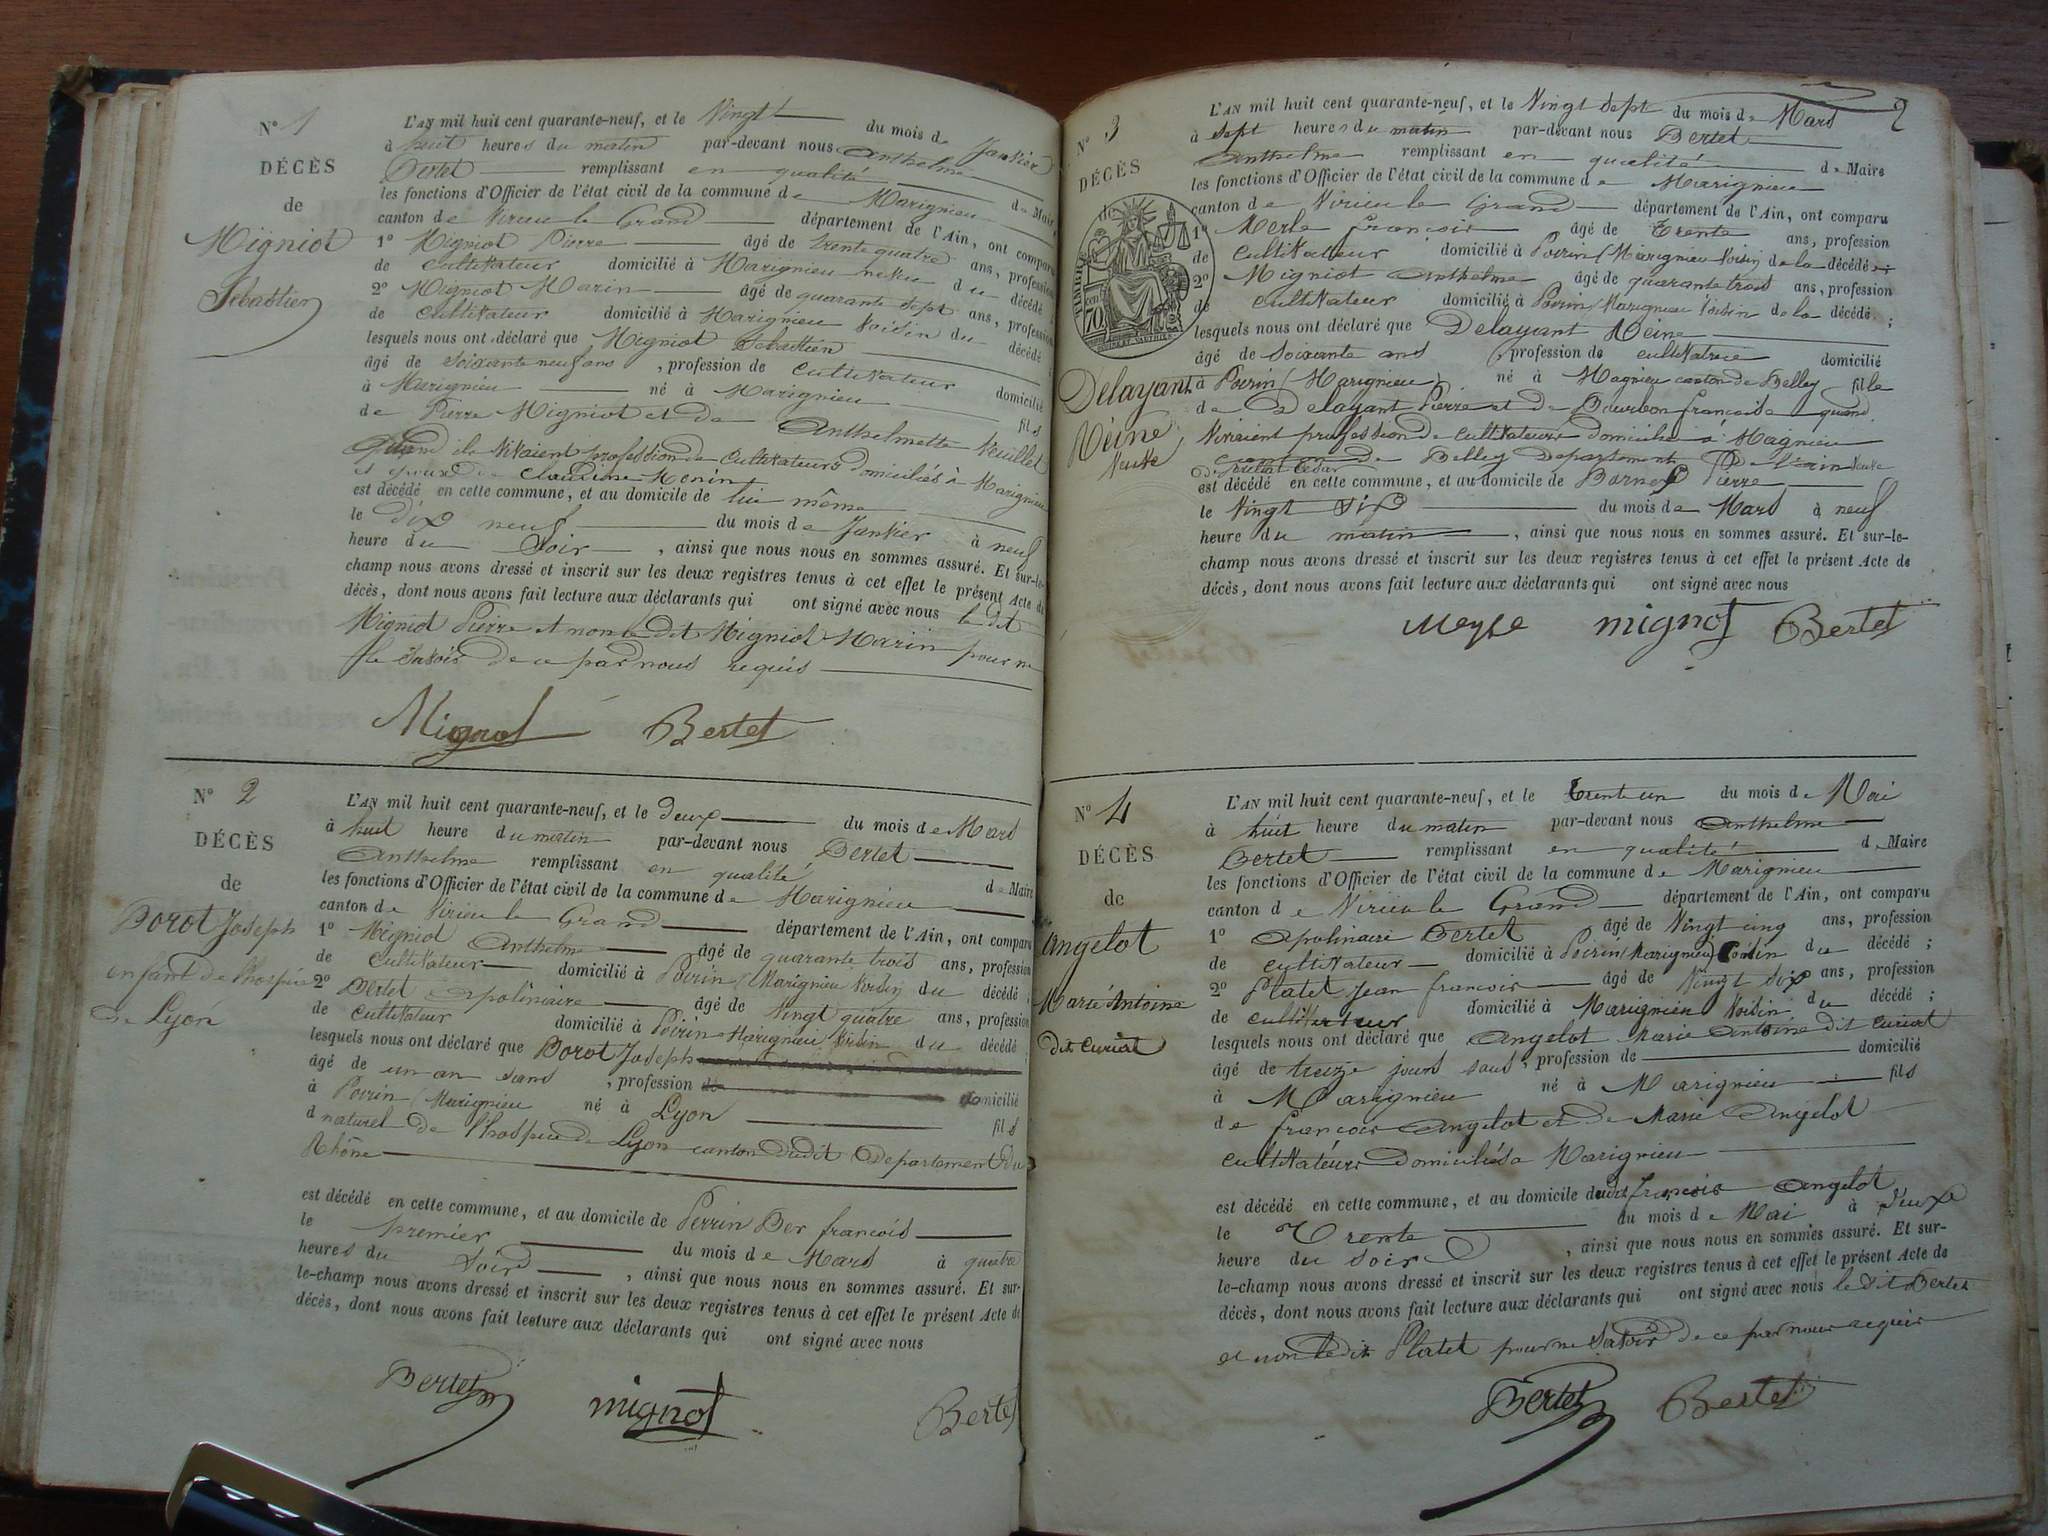 N° 1
DÉCÈS
de
Migniot
Sebastien
L'AN mil huit cent quarante-neuf, et le Vingt du mois de Janvier
à huit heures du matin par-devant nous Anthelme
Bertet remplissant en qualité de Maire
les fonctions d'Officier de l'état civil de la commune de Marignieu
canton de Virieu le Grand département de l'Ain, ont comparu
1° Migniot Pierre âgé de trente quatre ans, profession
de cultivateur domicilié à Marignieu neveu du décédé ;
2° Migniot Marin âgé de quarante sept ans, profession
de cultivateur domicilié à Marignieu Voisin du décédé
lesquels nous ont déclaré que Migniot Sebastien
âgé de soixante neuf ans, profession de cultivateur domicilié
à Marignieu né à Marignieu fils
de Pierre Migniot et de Anthelmette Veuillet
quand ils vivaient profession de cultivateurs domiciliés à Marignieu
et époux de Claudine Monin
est décédé en cette commune, et au domicile de lui même
le dix neuf du mois de Janvier à neuf
heure du Soir, ainsi que nous nous en sommes assuré. Et sur-le-
champ nous avons dressé et inscrit sur les deux registres tenus à cet effet le présent Acte de
décès, dont nous avons fait lecture aux déclarants qui ont signé avec nous le dit
Migniot Pierre et non le dit Migniot Marin pour ne
le savoir de ce par nous requis
Mignot Bertet
N° 2
DÉCÈS
de
Borot Joseph
enfant de l'hospice
de Lyon
L'AN mil huit cent quarante-neuf, et le deux du mois de Mars
à huit heure du matin par-devant nous Bertet
Anthelme remplissant en qualité de Maire
les fonctions d'Officier de l'état civil de la commune de Marignieu
canton de Virieu le Grand département de l'Ain, ont comparu
1° Migniot Anthelme âgé de quarante trois ans, profession
de cultivateur domicilié à Poirin (Marignieu Voisin du décédé ;
2° Bertet Apolinaire âgé de vingt quatre ans, profession
de cultivateur domicilié à Poirin Marignieu Voisin du décédé
lesquels nous ont déclaré que Borot Joseph
âgé de un an sans, profession de domicilié
à Poirin (Marignieu né à Lyon fils
d naturel de l'hospice de Lyon canton dudit Departement du
Rhône
est décédé en cette commune, et au domicile de Perrin Ber françois
le premier du mois de Mars à quatre
heures du Soird, ainsi que nous nous en sommes assuré. Et sur-
le-champ nous avons dressé et inscrit sur les deux registres tenus à cet effet le présent Acte de
décès, dont nous avons fait lecture aux déclarants qui ont signé avec nous
Bertet mignot Bertet
2
N° 3
DÉCÈS
de
Delayant
Reine
Veuve
L'AN mil huit cent quarante-neuf, et le Vingt Sept du mois de Mars
à sept heures du matin par-devant nous Bertet
Anthelme remplissant en qualité de Maire
les fonctions d'Officier de l'état civil de la commune de Marignieu
canton de Virieu le Grand département de l'Ain, ont comparu
1° Merle françois âgé de Trente ans, profession
de Cultivateur domicilié à Poirin (Marignieu Voisin de la décédé
2° Migniot Anthelme âgé de quarante trois ans, profession
de cultivateur domicilié à Poirin Marignieu Voisin de la décédé ;
lesquels nous ont déclaré que Delayant Reine
âgé de Soixante ans, profession de cultivatrice domicilié
à Poirin (Marignieu) né à Magnieu canton de Belley fille
de Delayant Pierre et de Bourbon françoise quand
Vivaient profession de cultivateurs domiciliés à Magnieu
canton de Belley Departement De l'ain Veuve
est décédé en cette commune, et au domicile de Pierre
le Vingt Six du mois de Mars à neuf
heure du matin, ainsi que nous nous en sommes assuré. Et sur-le-
champ nous avons dressé et inscrit sur les deux registres tenus à cet effet le présent Acte de
décès, dont nous avons fait lecture aux déclarants qui ont signé avec nous
mignot Bertet
N° 4
DÉCÈS
de
Angelot
Marie Antoine
dit Curiat
L'AN mil huit cent quarante-neuf, et le trente un du mois de Mai
à huit heure du matin par-devant nous Anthelme
Bertet remplissant en qualité de Maire
les fonctions d'Officier de l'état civil de la commune de Marignieu
canton de Virieu le Grand département de l'Ain, ont comparu
1° Apolinaire Bertet âgé de Vingt cinq ans, profession
de cultivateur domicilié à Poirin (Marignieu) Voisin du décédé ;
2° Platet Jean françois âgé de Vingt Six ans, profession
de cultivateur domicilié à Marignieu Voisin du décédé ;
lesquels nous ont déclaré que Angelot Marie Antoine dit Curiat
âgé de treize jours sans, profession de domicilié
à Marignieu né à Marignieu fils
de françois Angelot et de Marie Angelot
cultivateurs domiciliés à Marignieu
est décédé en cette commune, et au domicile dudit françois Angelot
le Trente du mois de Mai à Deux
heure du soir, ainsi que nous nous en sommes assuré. Et sur-
le-champ nous avons dressé et inscrit sur les deux registres tenus à cet effet le présent Acte de
décès, dont nous avons fait lecture aux déclarants qui ont signé avec nous le dit Bertet
et non le dit Platet pour ne Savoir de ce par nous requis
Bertet Bertet